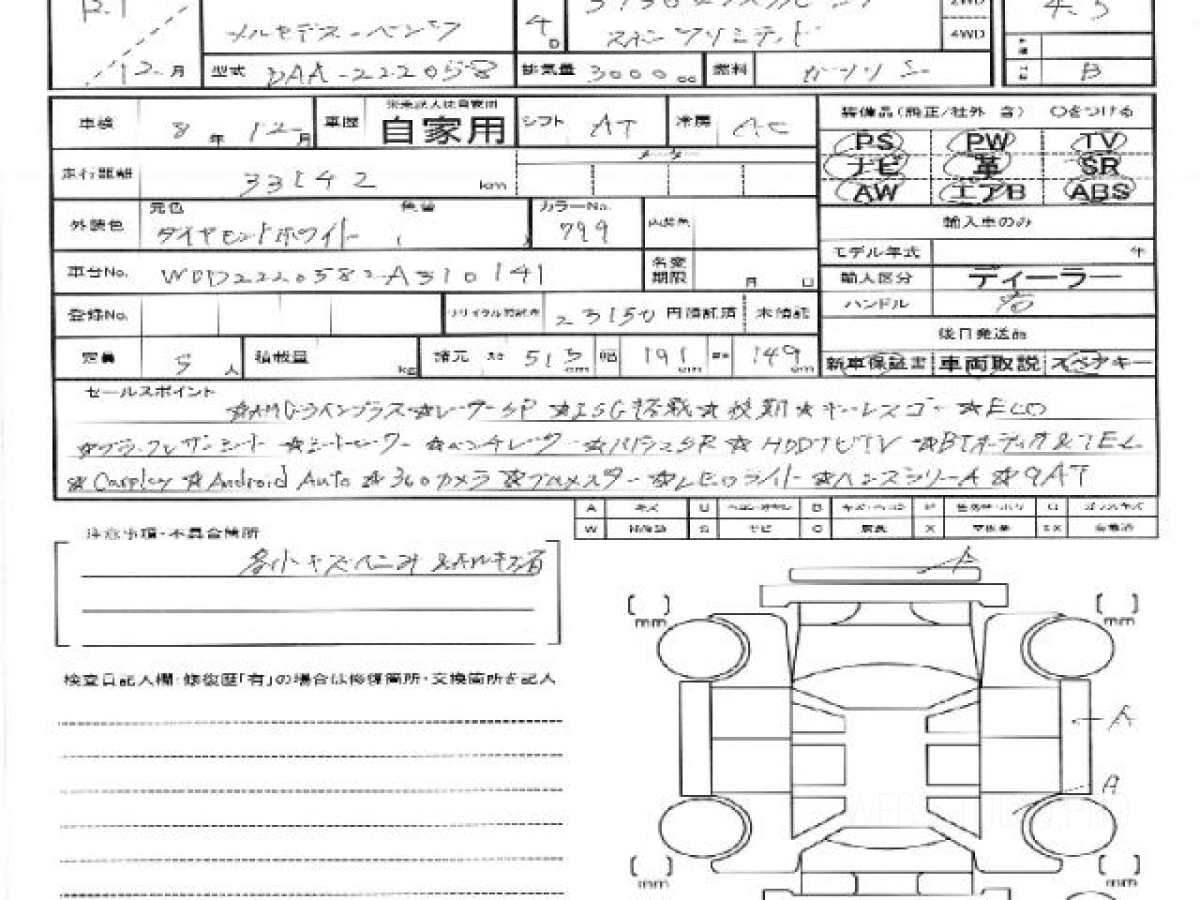 メルセデス・ベンツ 4D 2WD
4WD
12月 型式 DAA-222058 排気量 3000cc 燃料 ガソリン B
車検 8年 12月 車歴 自家用 シフト AT 冷房 AC 装備品(純正/社外 含) ○をつける
PS PW TV
走行距離 33142 km ナビ 革 SR
AW エアB ABS
外装色 元色 ダイヤモンドホワイト 色替 ( ) カラーNo. 799 内装色 輸入車のみ
モデル年式 年
車台No. WDD2220582A310141 名変期限 月 日 輸入区分 ディーラー
ハンドル 右
登録No. リサイクル預託金 23150円預託済 未預託
後日発送品
定員 5人 積載量 kg 諸元 長さ 515cm 幅 191cm 高さ 149cm 新車保証書 車両取説 スペアキー
セールスポイント
☆AMGラインプラス☆レーダーSP ☆ISG搭載☆後期☆キーレスゴー☆ECO
☆シートヒーター ☆ベンチレーター ☆パノラマSR ☆HDDナビTV ☆BTオーディオ&TEL
☆Carplay ☆Android Auto ☆360カメラ ☆ブルメスター ☆LEDライト ☆9AT
A キズ U ヘコミ B キズ・ヘコミ
W S サビ C 腐食 X 要交換 XX 交換済
注意事項・不具合箇所
多小キズヘコミ
検査員記入欄・修復歴「有」の場合は修復箇所・交換箇所を記入
A
mm mm
A
A
mm mm